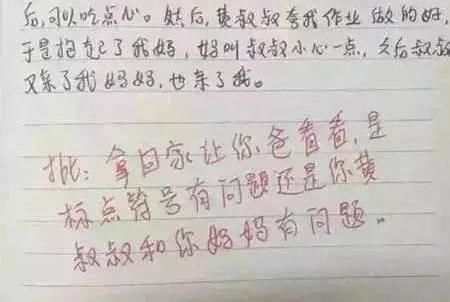 后,可以吃点心。然后,黄叔叔夸我作业做的好,
于是抱起了我妈,妈叫叔叔小心一点,之后叔叔
又亲了我妈妈,也亲了我。
批:拿回家让你爸看看,是
标点符号有问题还是你黄
叔叔和你妈妈有问题。